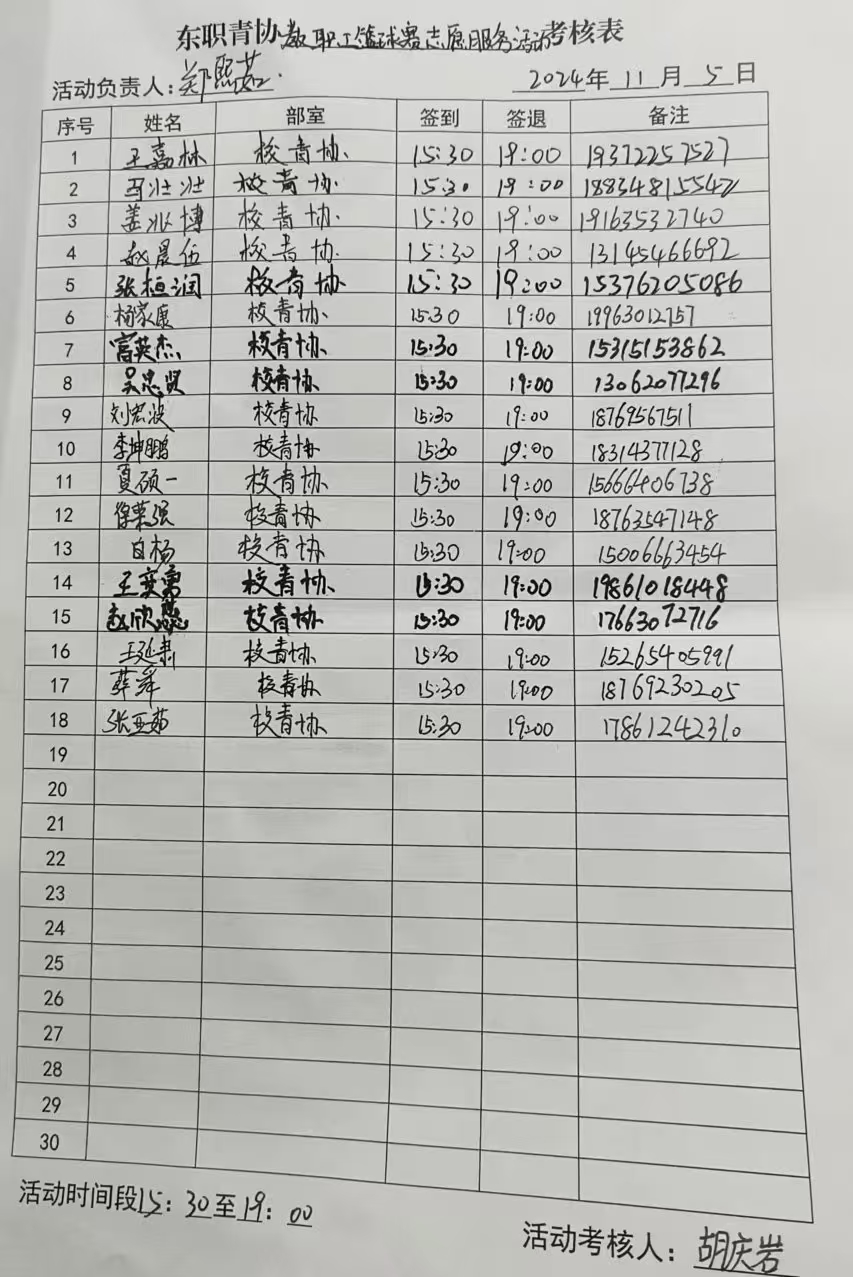 东职青协教职工篮球赛志愿服务活动考核表
活动负责人：郑熙茹
2024年11月5日
序号 姓名 部室 签到 签退 备注
1 王嘉林 校青协 15:30 19:00 19372257527
2 马壮壮 校青协 15:30 19:00 18834815542
3 盖兆博 校青协 15:30 19:00 19163532740
4 赵晨伍 校青协 15:30 19:00 13145466692
5 张桓润 校青协 15:30 19:00 15376205086
6 杨家康 校青协 15:30 19:00 19963012757
7 宫英杰 校青协 15:30 19:00 15315153862
8 吴忠贤 校青协 15:30 19:00 13062077296
9 刘宏波 校青协 15:30 19:00 18769567511
10 李坤鹏 校青协 15:30 19:00 18314377128
11 夏硕一 校青协 15:30 19:00 15666406738
12 徐荣强 校青协 15:30 19:00 18763547148
13 白杨 校青协 15:30 19:00 15006663454
14 王奕勇 校青协 15:30 19:00 19861018448
15 赵欣慈 校青协 15:30 19:00 17663072716
16 王延肃 校青协 15:30 19:00 15265405991
17 薛舜 校青协 15:30 19:00 18769230205
18 张亚茹 校青协 15:30 19:00 17861242310
19
20
21
22
23
24
25
26
27
28
29
30
活动时间段15：30至19：00
活动考核人：胡庆岩